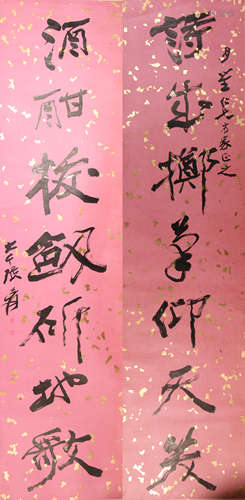 詩成擲筆仰天笑
酒酣拔劍斫地歌
大千張爰